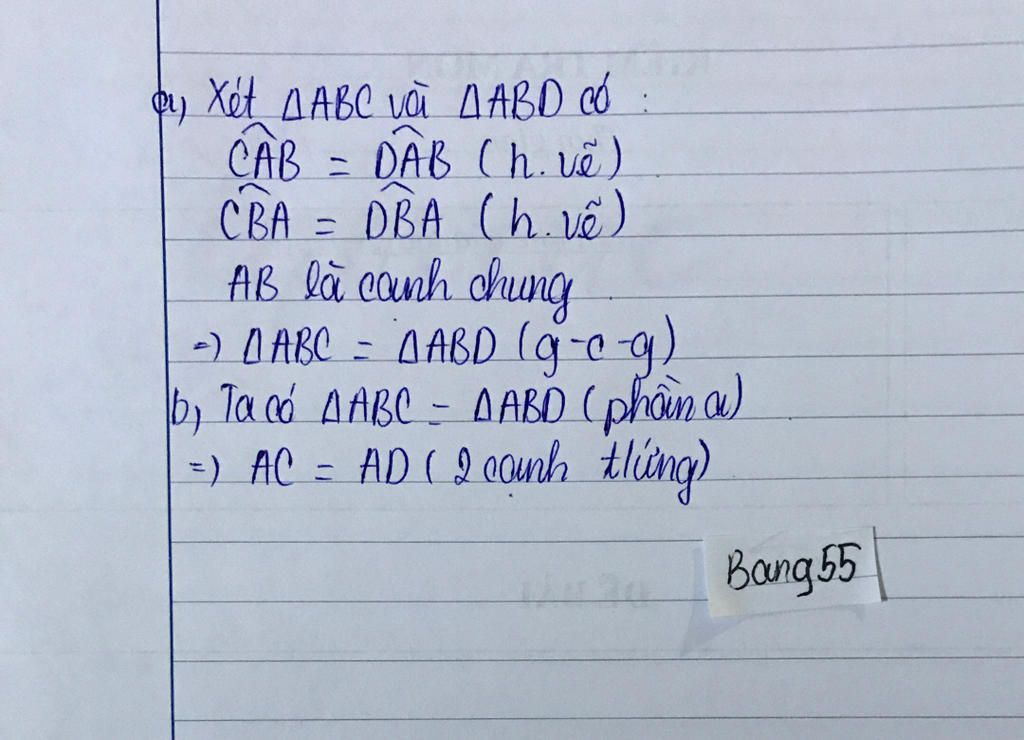 a, Xét ΔABC và ΔABD có :
CÂB = DÂB ( h. vẽ )
CB̂A = DB̂A ( h. vẽ )
AB là cạnh chung
=) ΔABC = ΔABD (g-c-g)
b, Ta có ΔABC = ΔABD ( phần a)
=) AC = AD ( 2 cạnh tứng)
Bang55